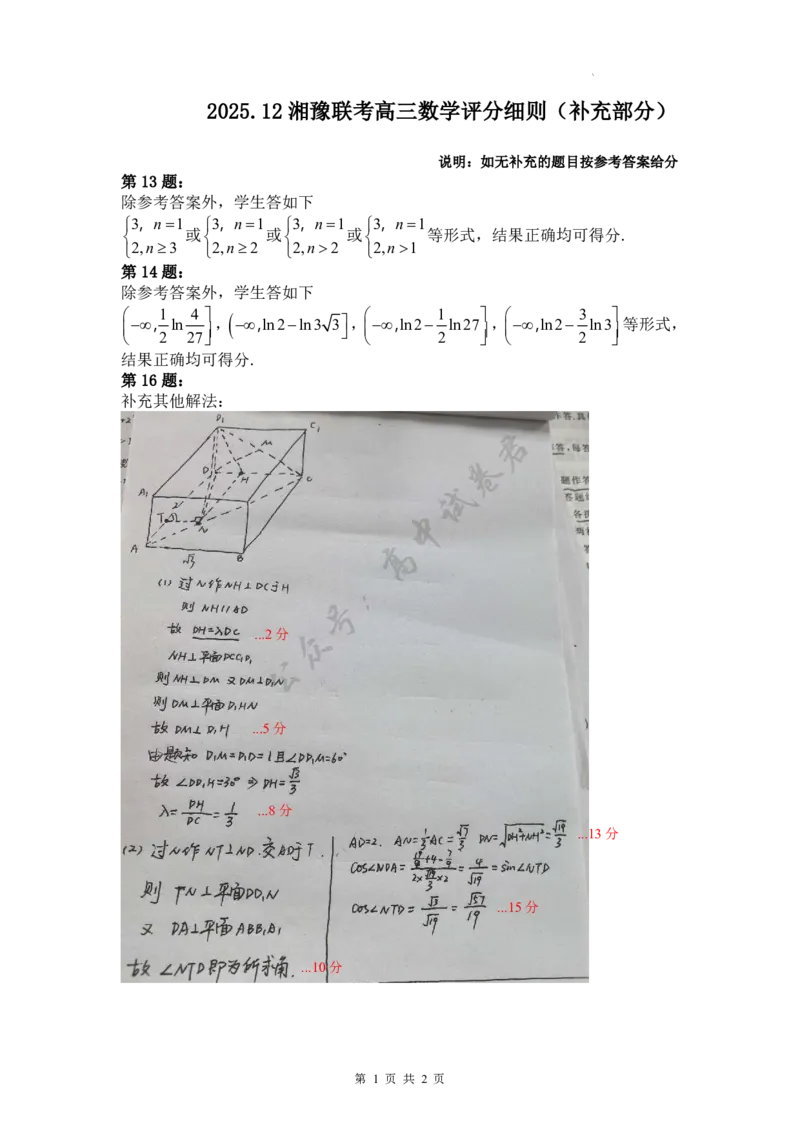 2025.12湘豫联考高三数学评分细则（补充部分）
说明：如无补充的题目按参考答案给分
第 13 题：
除参考答案外，学生答如下
{3, n=1 2,n≥3 或 {3, n=1 2,n≥2 或 {3, n=1 2,n>2 或 {3, n=1 2,n>1 等形式，结果正确均可得分.
第 14 题：
除参考答案外，学生答如下
(−∞, 1/2 ln 4/27], (−∞,ln2−ln3√3], (−∞,ln2−1/2 ln27], (−∞,ln2−3/2 ln3]等形式，
结果正确均可得分.
第 16 题：
补充其他解法：
D₁
C₁
M
D
H
C
A₁
2
T
N
A
√3
B
答,其
答,每答
题作答
答题
各
两
公众号：高中试卷君
(1) 过N作NH⊥DC于H
则 NH//AD
故 DH=λDC ...2 分
NH⊥平面DCC₁D₁
则NH⊥DM 又DM⊥D₁N
则DM⊥平面D₁HN
故DM⊥D₁H ...5 分
由题知 D₁M=D₁D=1且∠DD₁M=60°
故 ∠DD₁H=30° ⇒ DH=√3/3
λ=DH/DC=1/3 ...8 分
(2) 过N作NT⊥ND.交AD于T.
则 TN⊥平面DD₁N
又 DA⊥平面ABB₁A₁
故 ∠NTD即为所求角. ...10 分
AD=2. AN=1/3AC=√7/3 DN=√(DH²+NH²)=√19/3 ...13 分
COS∠NDA=(19/9+4-7/9)/(2×√19/3×2)=4/√19=sin∠NTD
COS∠NTD=√3/√19=√57/19 ...15 分
第 1 页 共 2 页